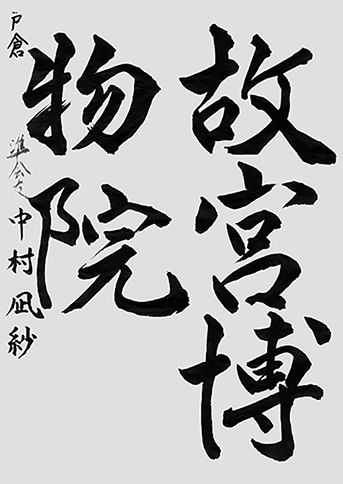 故宮博
物院
戸倉 準会友 中村凪紗